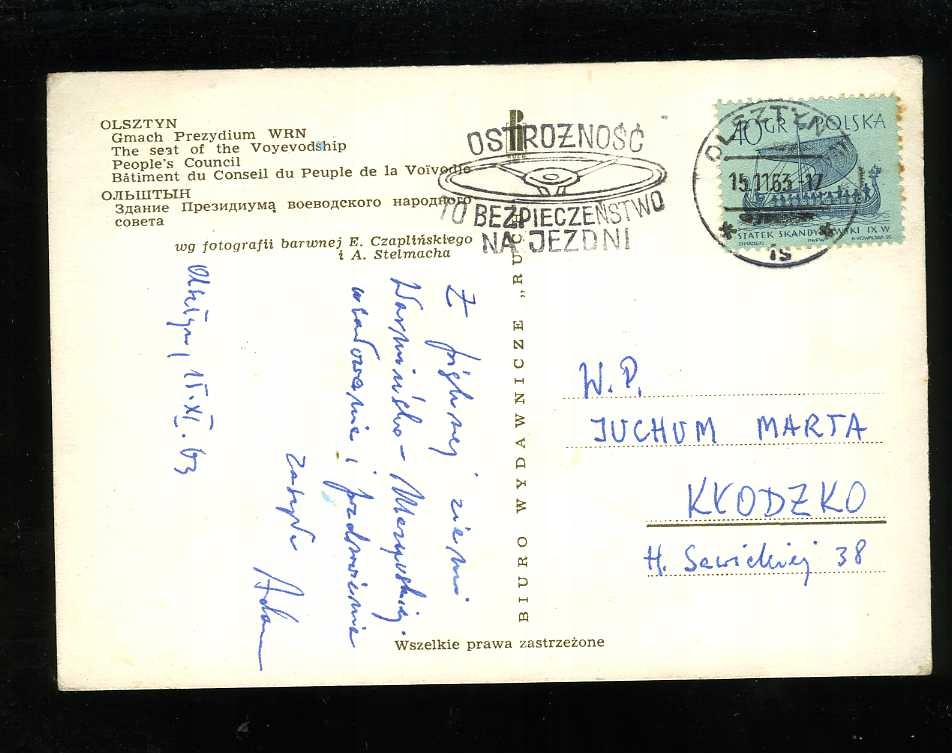 OLSZTYN
Gmach Prezydium WRN
The seat of the Voyevodship
People's Council
Bâtiment du Conseil du Peuple de la Voïvodie
ОЛЬШТЫН
Здание Президиума воеводского народного
совета
wg fotografii barwnej E. Czaplińskiego
i A. Stelmacha
OSTROŻNOŚĆ
TO BEZPIECZEŃSTWO
NA JEZDNI
OLSZTYN
15.11.63-17
15
40 GR POLSKA
STATEK SKANDYNAWSKI IX W
Olsztyn, 15.XI.63
Z pięknej ziemi
Warmińsko-Mazurskiej
i pozdrowienia
zasyła
Adam
BIURO WYDAWNICZE „RUCH"
W.P.
JUCHUM MARTA
KŁODZKO
H. Sawickiej 38
Wszelkie prawa zastrzeżone